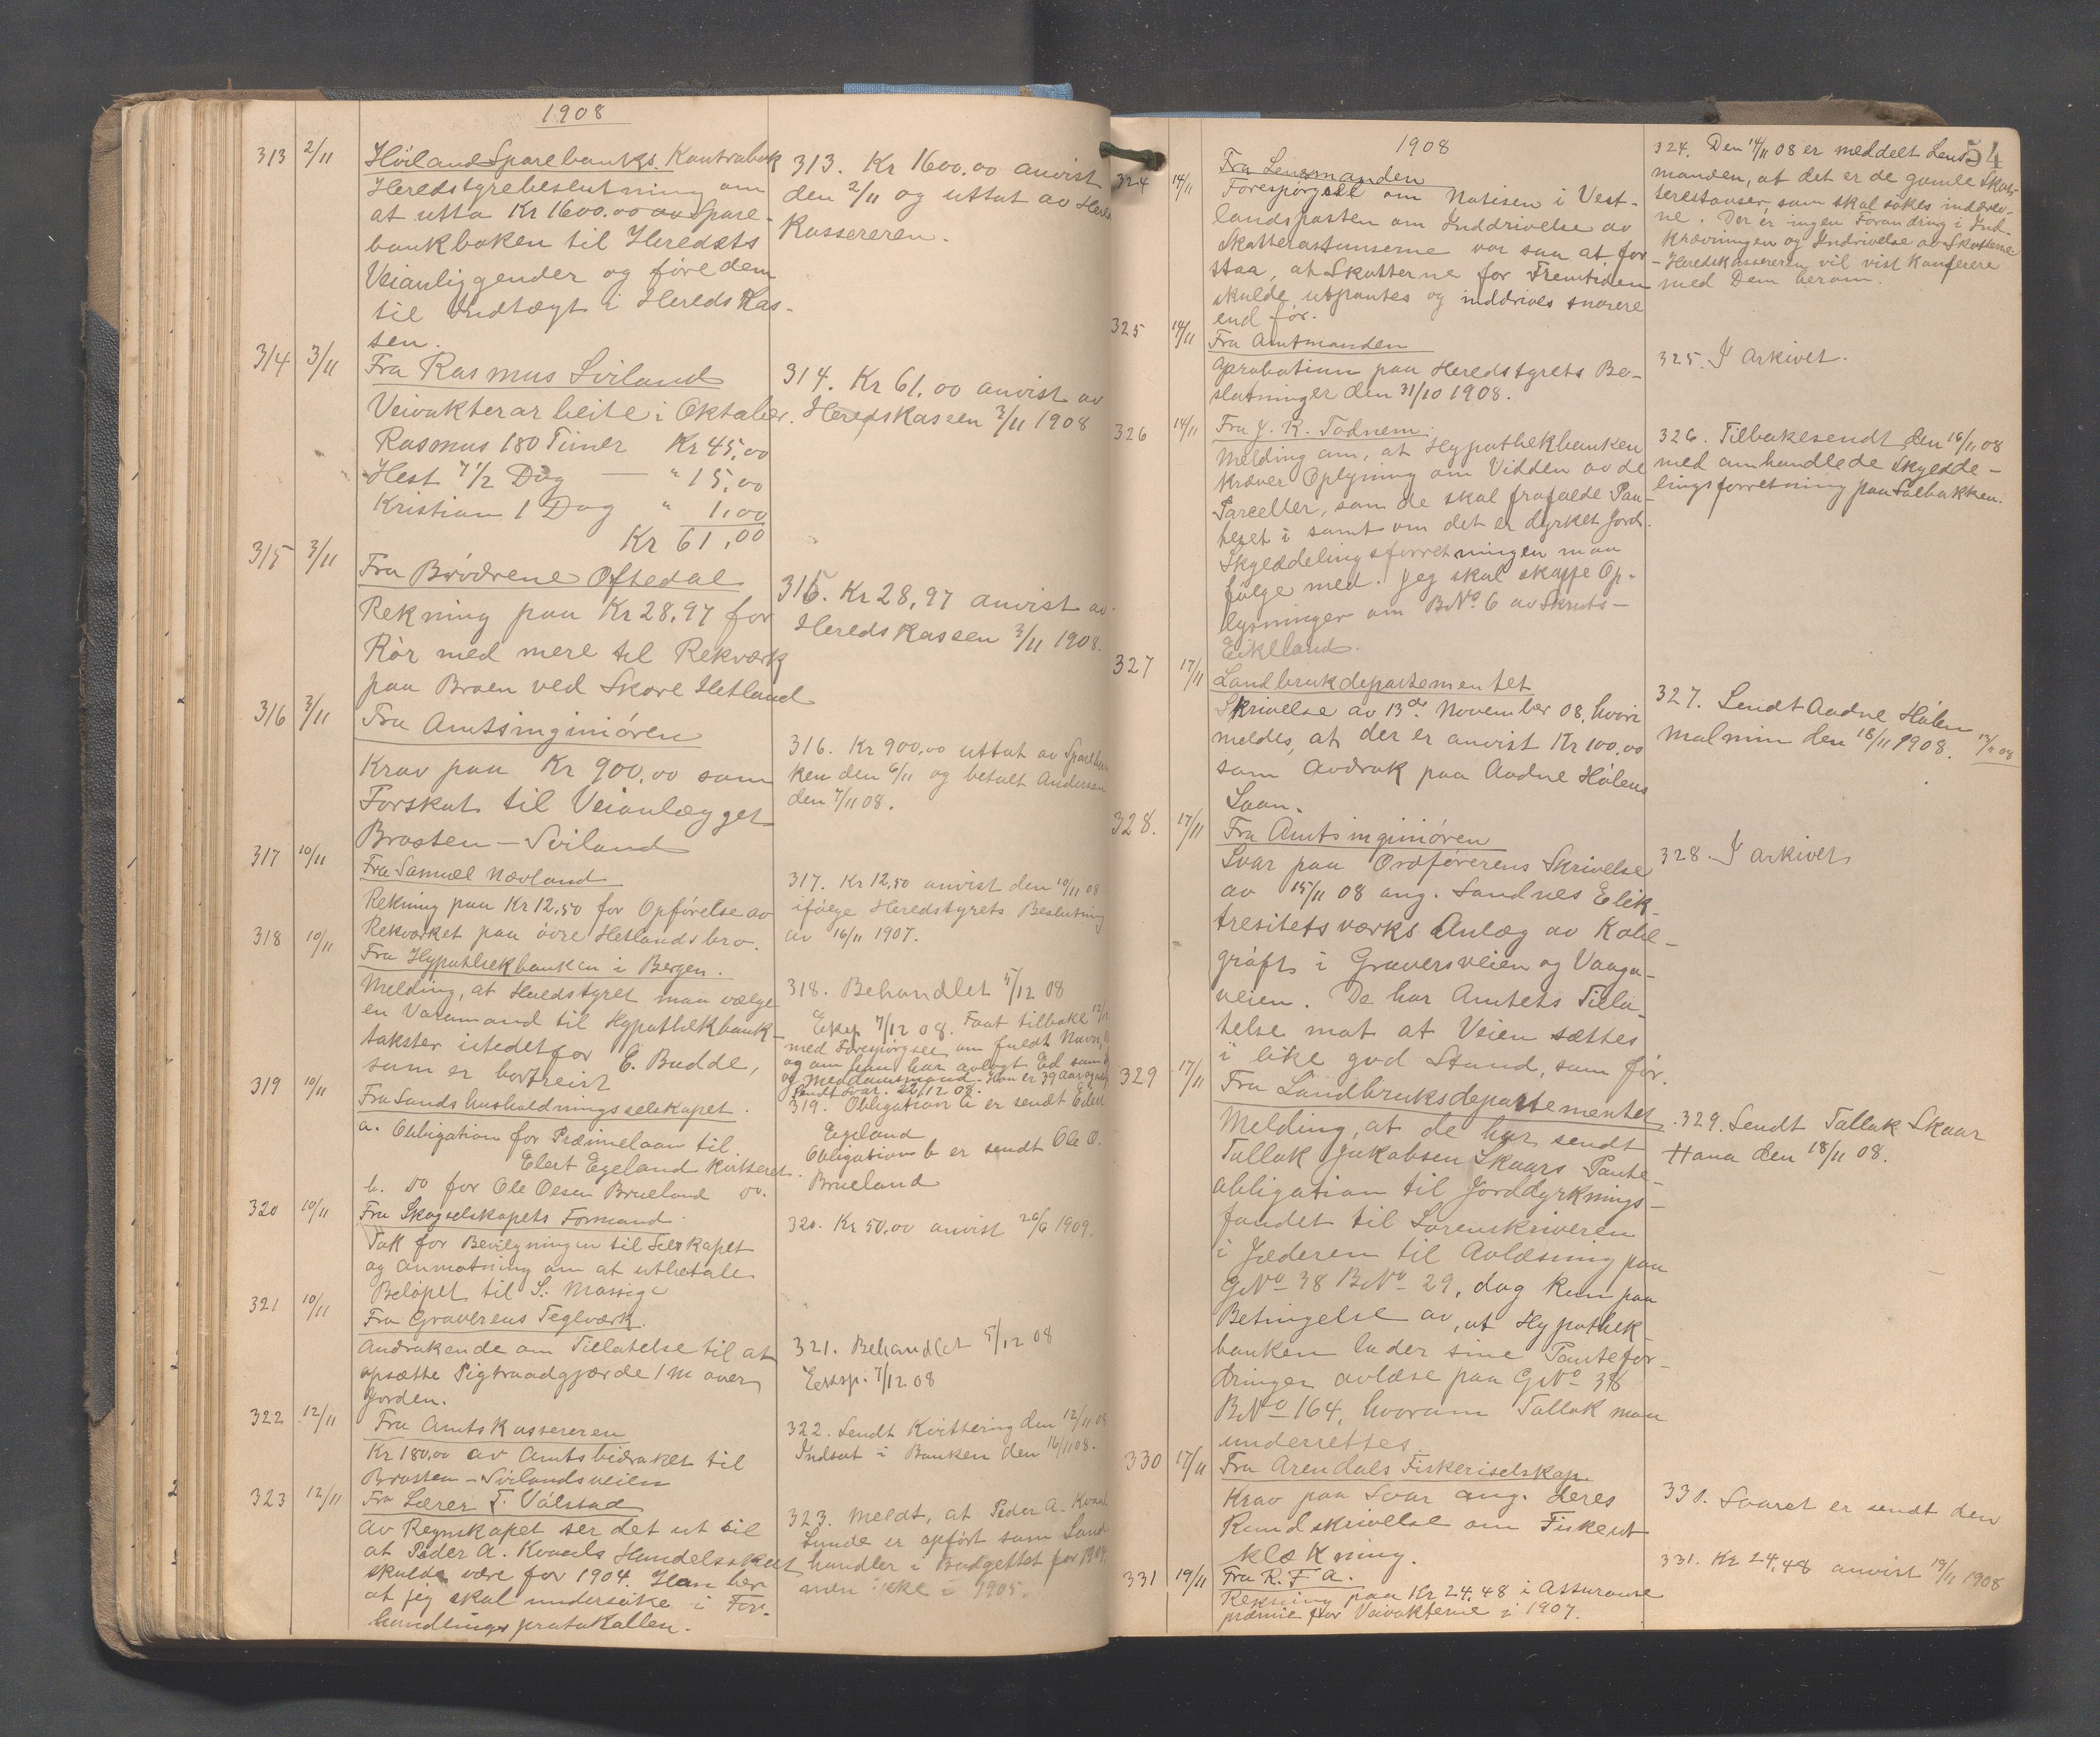 1908
313 2/11 Höiland Sparebanks. Kontrabok
Heredstyrebeslutning om
at utta Kr 1600.00 av Spare-
bankboken til Heredets
Veianliggender og före dem
til Indtægt i Hereds Kas-
sen.
313. Kr 1600.00 anvist
den 2/11 og uttat av Hereds
Kassereren.
314 3/11 Fra Rasmus Sviland
Veivakterarbeite i Oktober.
Rasmus 180 Timer Kr 45,00
Hest 7 1/2 Dag — " 15,00
Kristian 1 Dag " 1,00
Kr 61,00
314. Kr 61.00 anvist av
Heredskassen 3/11 1908
315 3/11 Fra Brödrene Oftedal
Rekning paa Kr 28.97 for
Rör med mere til Rekværk
paa Broen ved Skore Hetland
315. Kr 28,97 anvist av
Hereds Kassen 3/11 1908.
316 3/11 Fra Amtsinginiören
Krav paa Kr 900,00 som
Forskut til Veianlægget
Brosten – Sviland
316. Kr 900,00 uttat av Spareban
ken den 6/11 og betalt Andersen
den 7/11 08.
317 10/11 Fra Samuel Nævland
Rekning paa Kr 12,50 for Opförelse av
Rekværket paa övre Hetlandsbro.
317. Kr 12,50 anvist den 10/11 08
ifölge Heredstyrets Beslutning
av 16/11 1907.
318 10/11 Fra Hypothekbanken i Bergen.
Melding, at Heredstyret maa vælge
en Varamand til Hypothekbank-
takster istedetfor E. Budde,
som er bortreist
318. Behandlet 5/12 08
Eksp 7/12 08. Faat tilbake 12/12
med Forespörgsel om fuldt Navn,
og om han har avlagt Ed som
og Meddomsmand. Han er 39 Aar
Sendt Svar. 22/12 08.
319 10/11 Fra Sands husholdningsselskapet.
a. Obligation for Præmielaan til
Elert Egeland kvitteret.
b. Do for Ole Olsen Brueland Do.
319. Obligation a er sendt Elert
Egeland
Obligation b er sendt Ole O.
Brueland
320 10/11 Fra Skogselskapets Formand
Tak for Bevilgningen til Selskapet
og Anmotning om at utbetale
Belöpet til S.
320. Kr 50.00 anvist 26/6 1909.
321 10/11 Fra Graverens Teglværk.
Andrakende om Tillatelse til at
opsætte Pigtraadgjærde 1 m over
Jorden.
321. Behandlet 5/12 08
Eksp. 7/12 08
322 12/11 Fra Amtskassereren
Kr 180.00 av Amtsbidraket til
Brosten – Svilandsveien
322. Sendt Kvittering den 12/11 08
Indsat i Banken den 16/11 08.
323 12/11 Fra Lærer T. Válstad
Av Regnskapet ser det ut til
at Peder A. Kvaals Handelsskat
skulde være for 1904. Han ber
at jeg skal undersöke i For-
handlingsprotokollen.
323. Meldt, at Peder A. Kvaal
Lunde er opfört som Land
handler i Budgettet for 1904.
men ikke i 1905.
54
1908
324 14/11 Fra Lensmanden
Forespörgsel om Notisen i Vest-
landsposten om Inddrivelse av
Skatterestanserne var saa at for-
staa, at Skatterne for Fremtiden
skulde utpantes og inddrives snarere
end för.
324. Den 14/11 08 er meddelt Lens-
manden, at det er de gamle Skat-
terestanser, som skal sökes inddrev-
ne. Der er ingen Forandring i Ind-
krævningen og Indrivelse av Skatterne
Heredskassereren vil vist konferere
med Dem herom.
325 14/11 Fra Amtmanden
Aprobation paa Heredstyrets Be-
slutninger den 31/10 1908.
325. I Arkivet.
326 14/11 Fra J. K. Todnem.
Melding om, at Hypothekbanken
kræver Oplysning om Vidden av de
Parceller, som de skal frafalde Pan-
tezet i samt om det er dyrket Jord.
Skyeddelingsforretningen maa
fölge med. Jeg skal skaffe Op-
lysninger om BNo. 6 av Skruds-
Eikeland.
326. Tilbakesendt den 16/11 08
med omhandlede Skyedde-
lingsforretning paa Solbakken.
327 17/11 Landbrukdepartementet
Skrivelse av 13de November 08, hvori
meldes, at der er anvist Kr 100.00
som Avdrak paa Aadne Hólens
Laan.
327. Sendt Aadne Hólen
Malmin den 18/11 1908. 17/11 08
328. 17/11 Fra Amtsinginiören
Svar paa Ordförerens Skrivelse
av 15/11 08 ang. Sandnes Elek-
tresitetsværks Anlæg av Kabel-
gröft i Graversveien og Vaage-
veien. De har Amtets Tilla-
telse mot at Veien sættes
i like god Stand, som för.
328. I Arkivet
329 17/11 Fra Landbruksdepartementet
Melding, at de har sendt
Tallak Jakobsen Skaars Pante-
obligation til Jorddyrknings-
fondet til Sorenskriveren
i Jæderen til Avlæsning paa
GNo 38 BNo 29, dog kun paa
Betingelse av, at Hypothek-
banken lader sine Pantefor-
dringer avlæse paa GNo 38
BNo 164, hvorom Tallak maa
underrettes
329. Sendt Tallak Skaar
Hana den 18/11 08.
330 17/11 Fra Arendals Fiskeriselskap.
Krav paa Svar ang. deres
Rundskrivelse om Fiskeut
klækning.
330. Svaret er sendt den
331 19/11 Fra R. F. A.
Rekning paa Kr 24.48 i Assuranse
præmie for Veivokterne i 1907.
331. Kr 24,48 anvist 19/11 1908